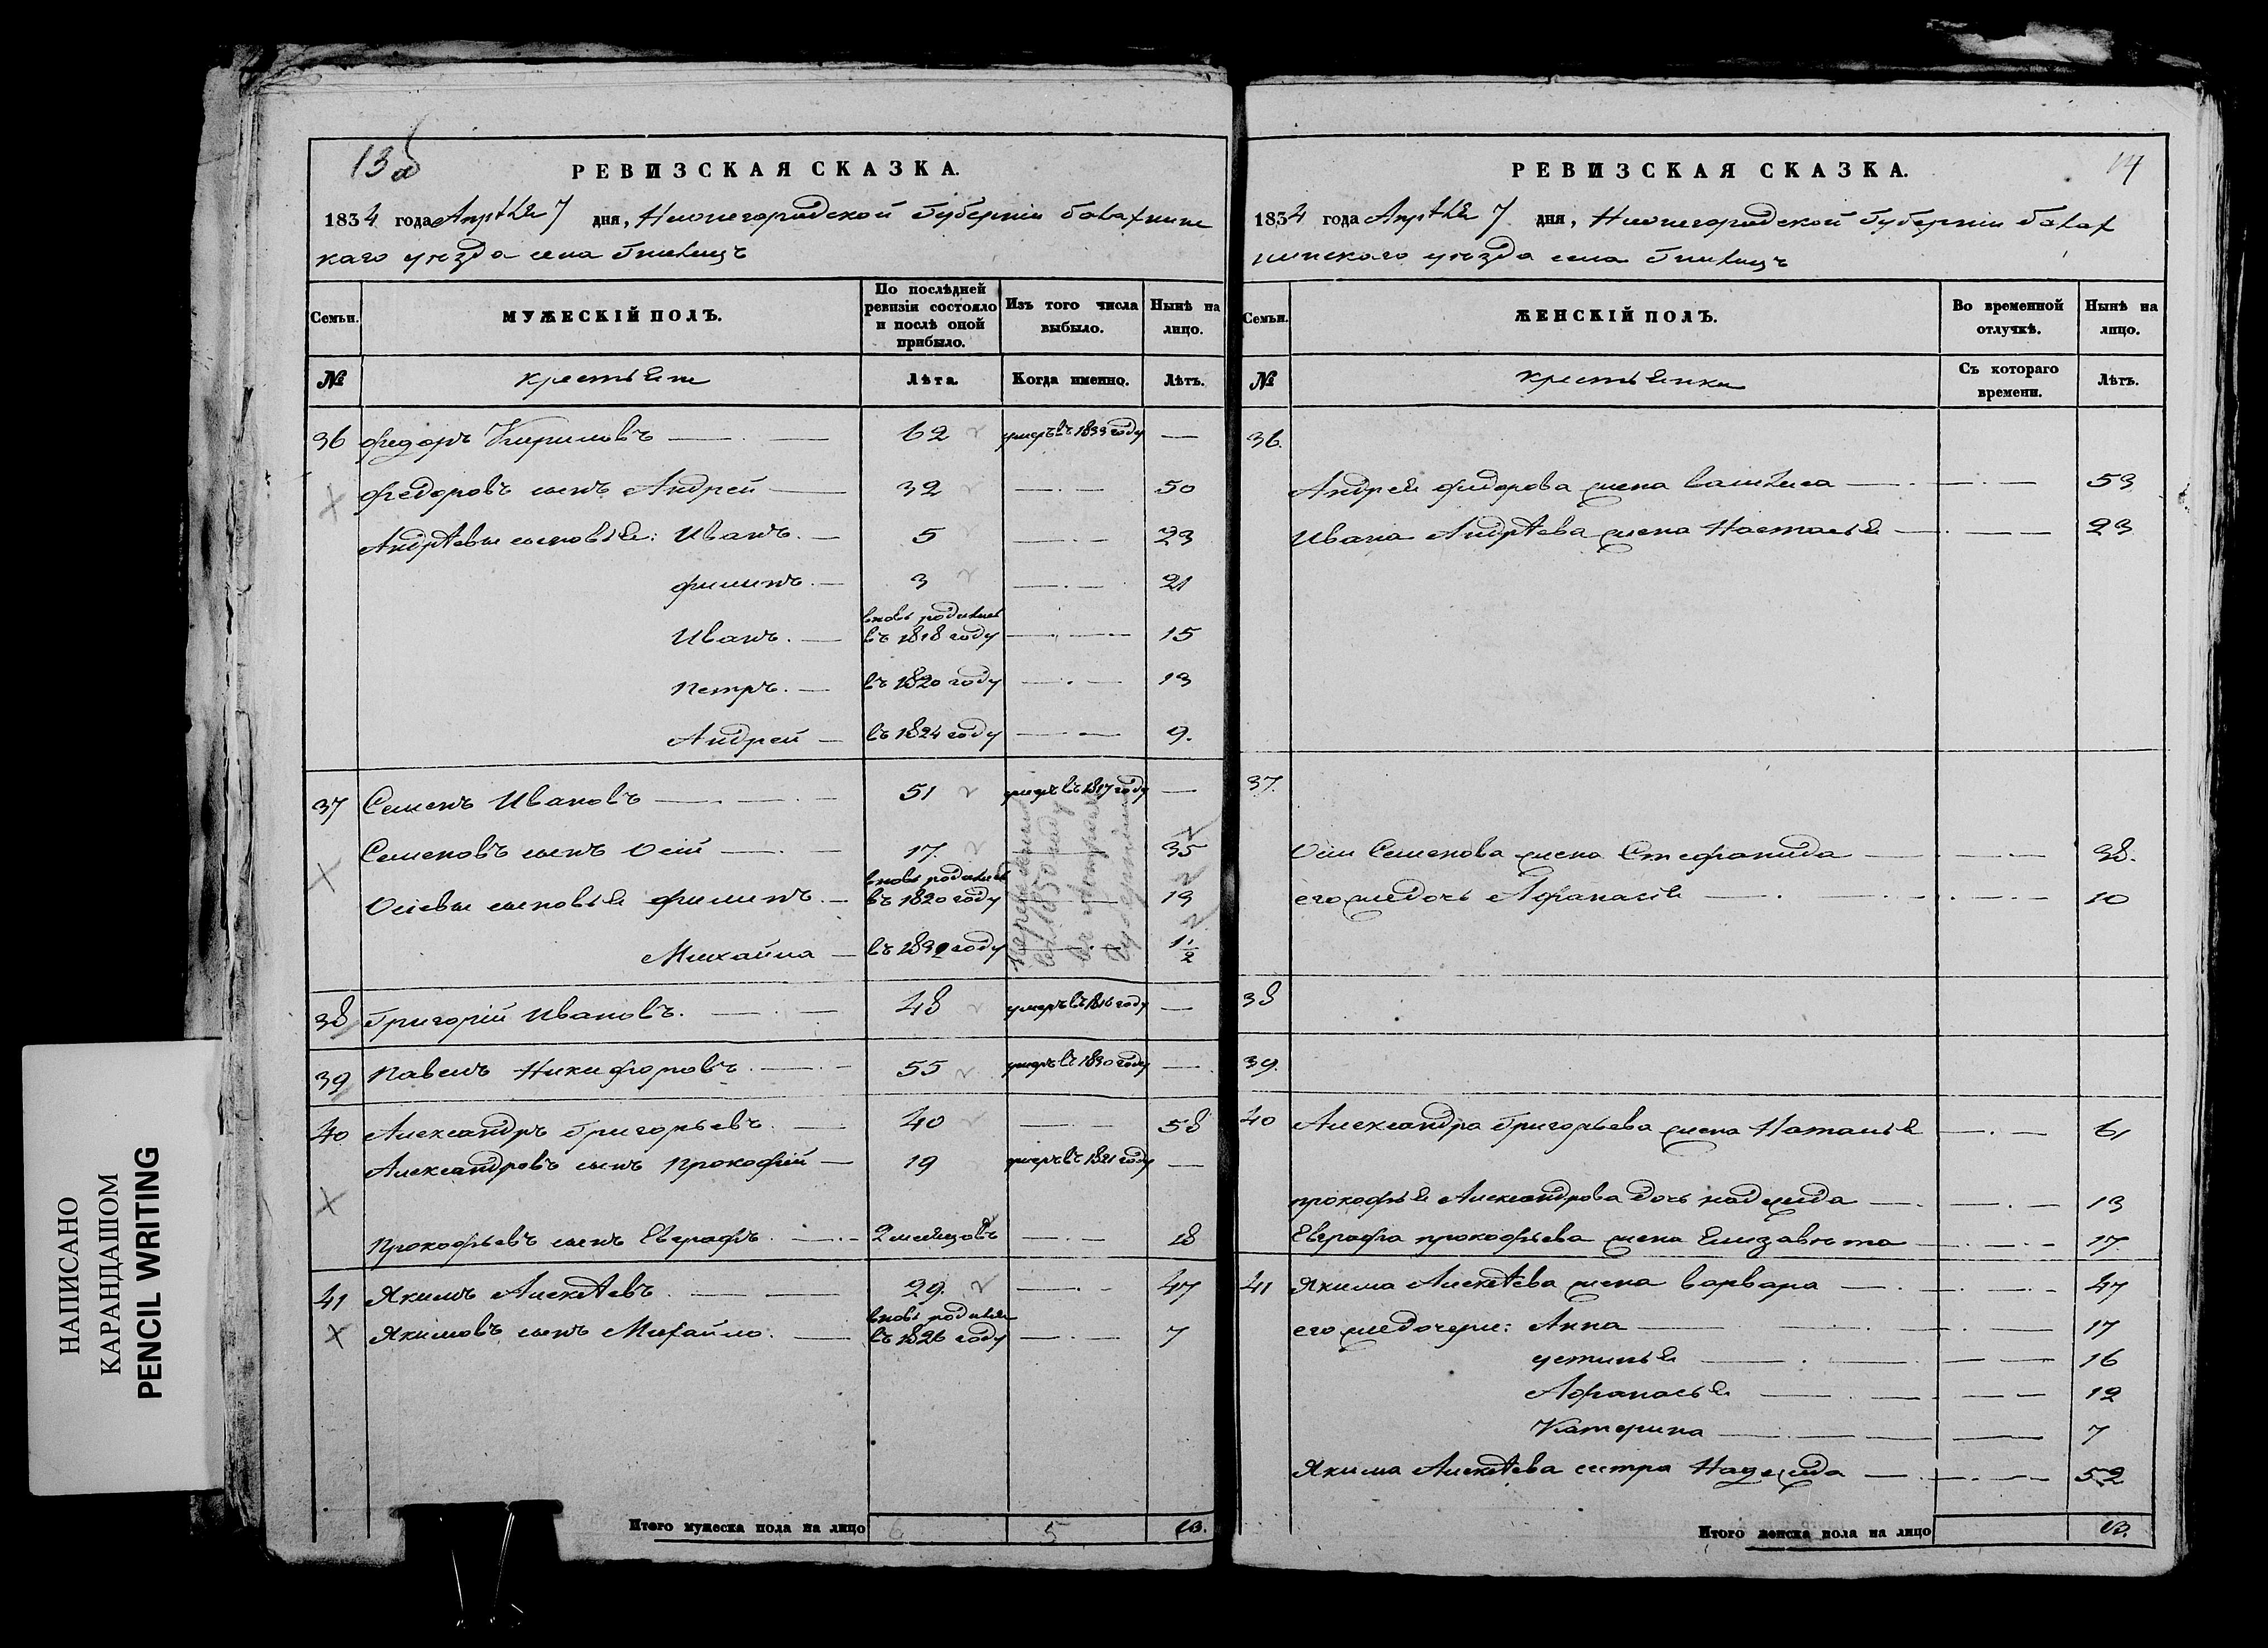 13 об
РЕВИЗСКАЯ СКАЗКА.
1834 года Апрѣля 7 дня, Нижегородской Губерніи Балахнинс
каго уѣзда села Гнилицъ
Семьи.
МУЖЕСКІЙ ПОЛЪ.
По послѣдней ревизіи состояло и послѣ оной прибыло.
Изъ того числа выбыло.
Нынѣ на лицо.
№
крестьяне
Лѣта.
Когда именно.
Лѣтъ.
36 Федоръ Кириловъ — 62 умеръ въ 1833 году —
Федоровъ сынъ Андрей — 32 — 50
Андрѣевы сыновья: Иванъ. — 5 — 23
Филипъ. — 3 — 21
вновь родились
Иванъ. — въ 1818 году — 15
Петръ. — въ 1820 году — 13
Андрей — въ 1824 году — 9.
37 Семенъ Ивановъ — 51 умеръ въ 1817 году —
Семеновъ сынъ Осій — 17. — 35
вновь родились
Осіевы сыновья Филипъ. — въ 1820 году — 13
Михайла — въ 1832 году — 1 1/2
въ 1850 году
38 Григорій Ивановъ. — 48 умеръ въ 1816 году —
39 Павелъ Никифоровъ. — 55 умеръ въ 1830 году —
40 Александръ Григорьевъ. — 40 — 58
Александровъ сынъ Прокофій — 19 умеръ въ 1821 году —
Прокофьевъ сынъ Евграфъ. — 2 месяцовъ — 18
41 Якимъ Алексѣевъ. — 29. — 47
вновь родился
Якимовъ сынъ Михайло. — въ 1826 году — 7
Итого мужеска пола на лицо 6 5 13.
14
РЕВИЗСКАЯ СКАЗКА.
1834 года Апрѣля 7 дня, Нижегородской Губерніи Балах
нинскаго уѣзда села Гнилицъ
Семьи.
ЖЕНСКІЙ ПОЛЪ.
Во временной отлучкѣ.
Нынѣ на лицо.
№
крестьянки
Съ котораго времени.
Лѣтъ.
36.
Андрея Федорова жена Василиса — 53
Ивана Андрѣева жена Настасья — 23
37.
Осіи Семенова жена Стефанида — 38.
его же дочь Афанасія — 10
38
39.
40 Александра Григорьева жена Наталья — 61
Прокофья Александрова дочь Надежда — 13
Евграфа Прокофьева жена Елизавѣта — 17.
41 Якима Алексѣева жена Варвара — 47
его же дочери: Анна — 17
Устинья — 16
Афанасья — 12
Катерина — 7
Якима Алексѣева сестра Надежда — 52
Итого женска пола на лицо 13.
НАПИСАНО
КАРАНДАШОМ
PENCIL WRITING